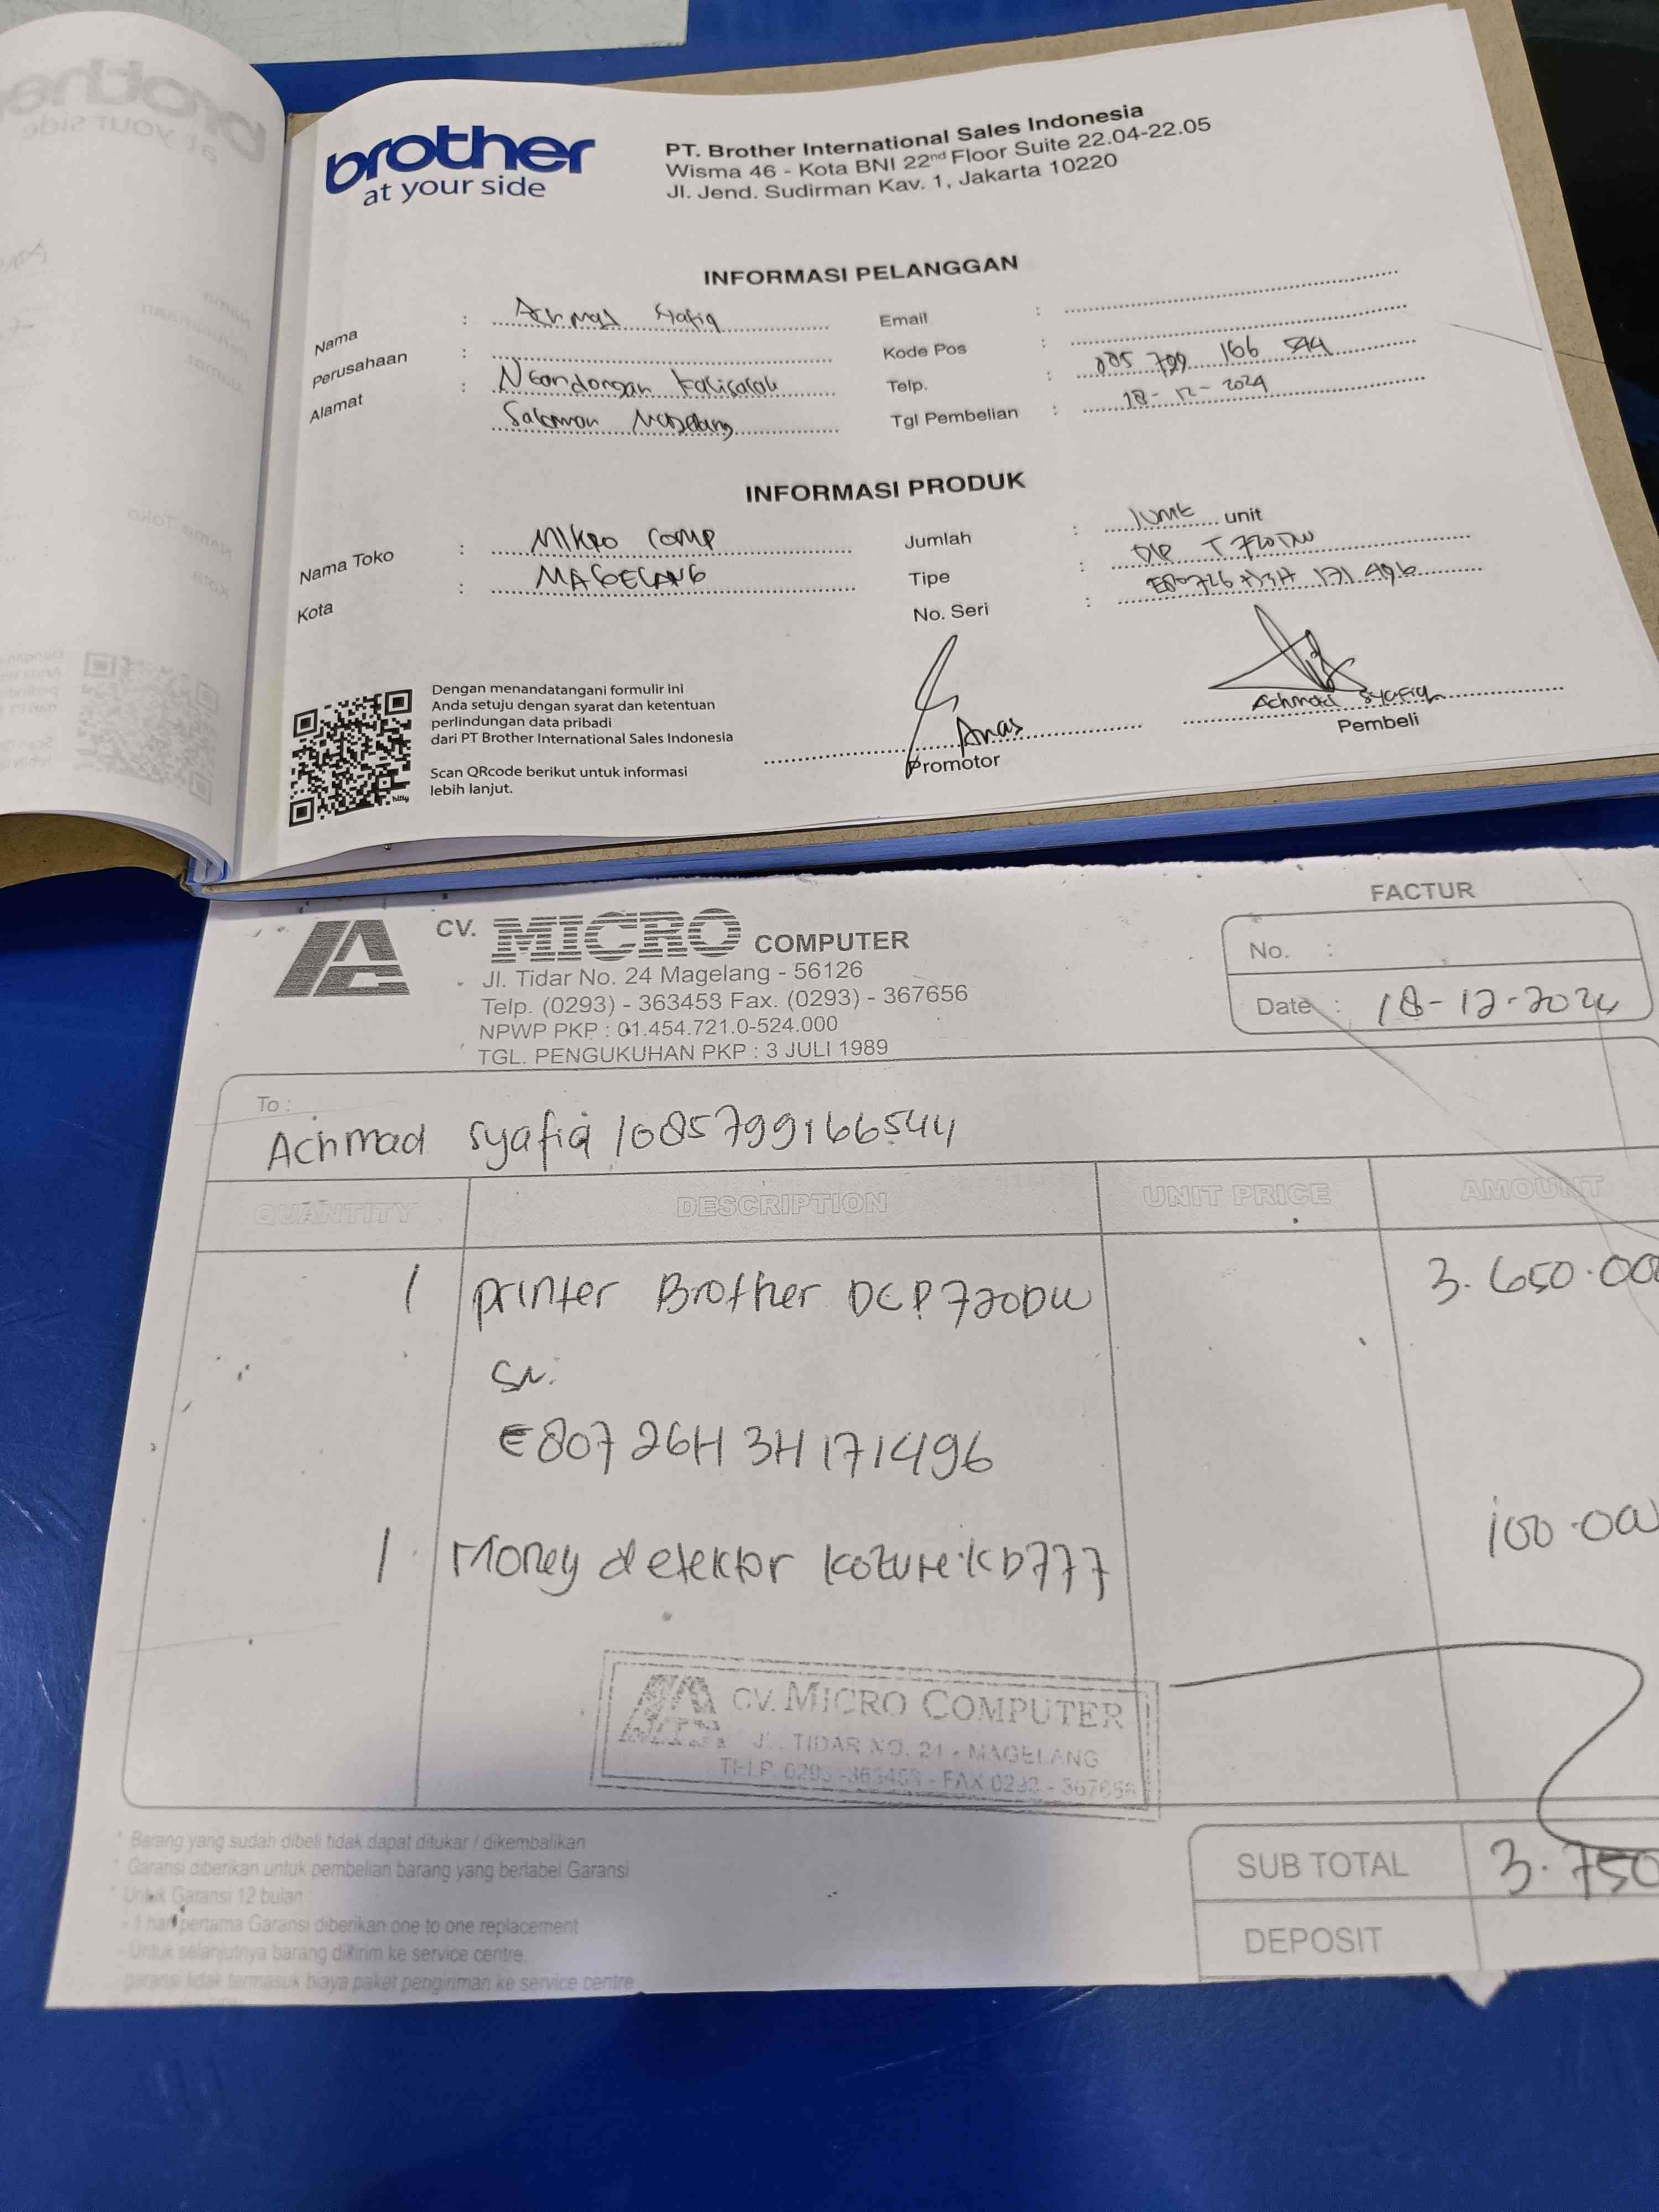 brother
at your side
PT. Brother International Sales Indonesia
Wisma 46 - Kota BNI 22nd Floor Suite 22.04-22.05
Jl. Jend. Sudirman Kav. 1, Jakarta 10220
INFORMASI PELANGGAN
Nama : Achmad Syafiq
Perusahaan :
Alamat : Ngandongan Kalisalak
Salaman Magelang
Email :
Kode Pos :
Telp. : 085 799 166 544
Tgl Pembelian : 18-12-2024
INFORMASI PRODUK
Nama Toko : MIKRO COMP
Kota : MAGELANG
Jumlah : 1 unit
Tipe : DCP T720DW
No. Seri : E80726H3H171496
Dengan menandatangani formulir ini
Anda setuju dengan syarat dan ketentuan
perlindungan data pribadi
dari PT Brother International Sales Indonesia
Scan QRcode berikut untuk informasi
lebih lanjut.
bitly
Anas
Promotor
Achmad Syafiq
Pembeli
CV. MICRO COMPUTER
Jl. Tidar No. 24 Magelang - 56126
Telp. (0293) - 363453 Fax. (0293) - 367656
NPWP PKP : 01.454.721.0-524.000
TGL. PENGUKUHAN PKP : 3 JULI 1989
FACTUR
No. :
Date : 18-12-2024
To :
Achmad syafiq / 085799166544
QUANTITY DESCRIPTION UNIT PRICE AMOUNT
1 printer Brother DCP720DW 3.650.00
SN.
E80726H3H171496
1 Money detektor Kozure KD777 100.00
CV. MICRO COMPUTER
JL. TIDAR NO. 24 - MAGELANG
TELP. 0293 -363453 - FAX 0293 - 367656
* Barang yang sudah dibeli tidak dapat ditukar / dikembalikan
* Garansi diberikan untuk pembelian barang yang berlabel Garansi
* Untuk Garansi 12 bulan
- 1 hari pertama Garansi diberikan one to one replacement
- Untuk selanjutnya barang dikirim ke service centre.
garansi tidak termasuk biaya paket pengiriman ke service centre
SUB TOTAL 3.750
DEPOSIT